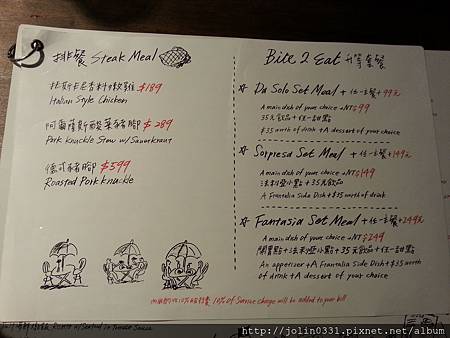 排餐 Steak Meal
托斯卡尼香料嫩雞 $189
Italian Style Chicken
阿爾薩斯酸菜豬腳 $289
Pork Knuckle Stew w/ Sauerkraut
德式豬腳 $599
Roasted Pork Knuckle
Bite 2 Eat 升等套餐
☆ Da Solo Set Meal + 任一主餐 + 99元
A main dish of your choice + NT$99
35元飲品 + 任一甜點
$35 worth of drink + A dessert of your choice
☆ Sorpresa Set Meal + 任一主餐 + 149元
A main dish of your choice + NT$149
法利燈小點 + 35元飲品
A Frantalia Side Dish + $35 worth of drink
☆ Fantasia Set Meal + 任一主餐 + 249元
A main dish of your choice + NT$249
開胃點 + 法利燈小點 + 35元飲品 + 任一甜點
An appetizer + A Frantalia Side Dish + $35 worth
of drink + A dessert of your choice
10% of Service charge will be added to your bill
Risotto w/ Seafood in Tomato Sauce
http://jolin0331.pixnet.net/album